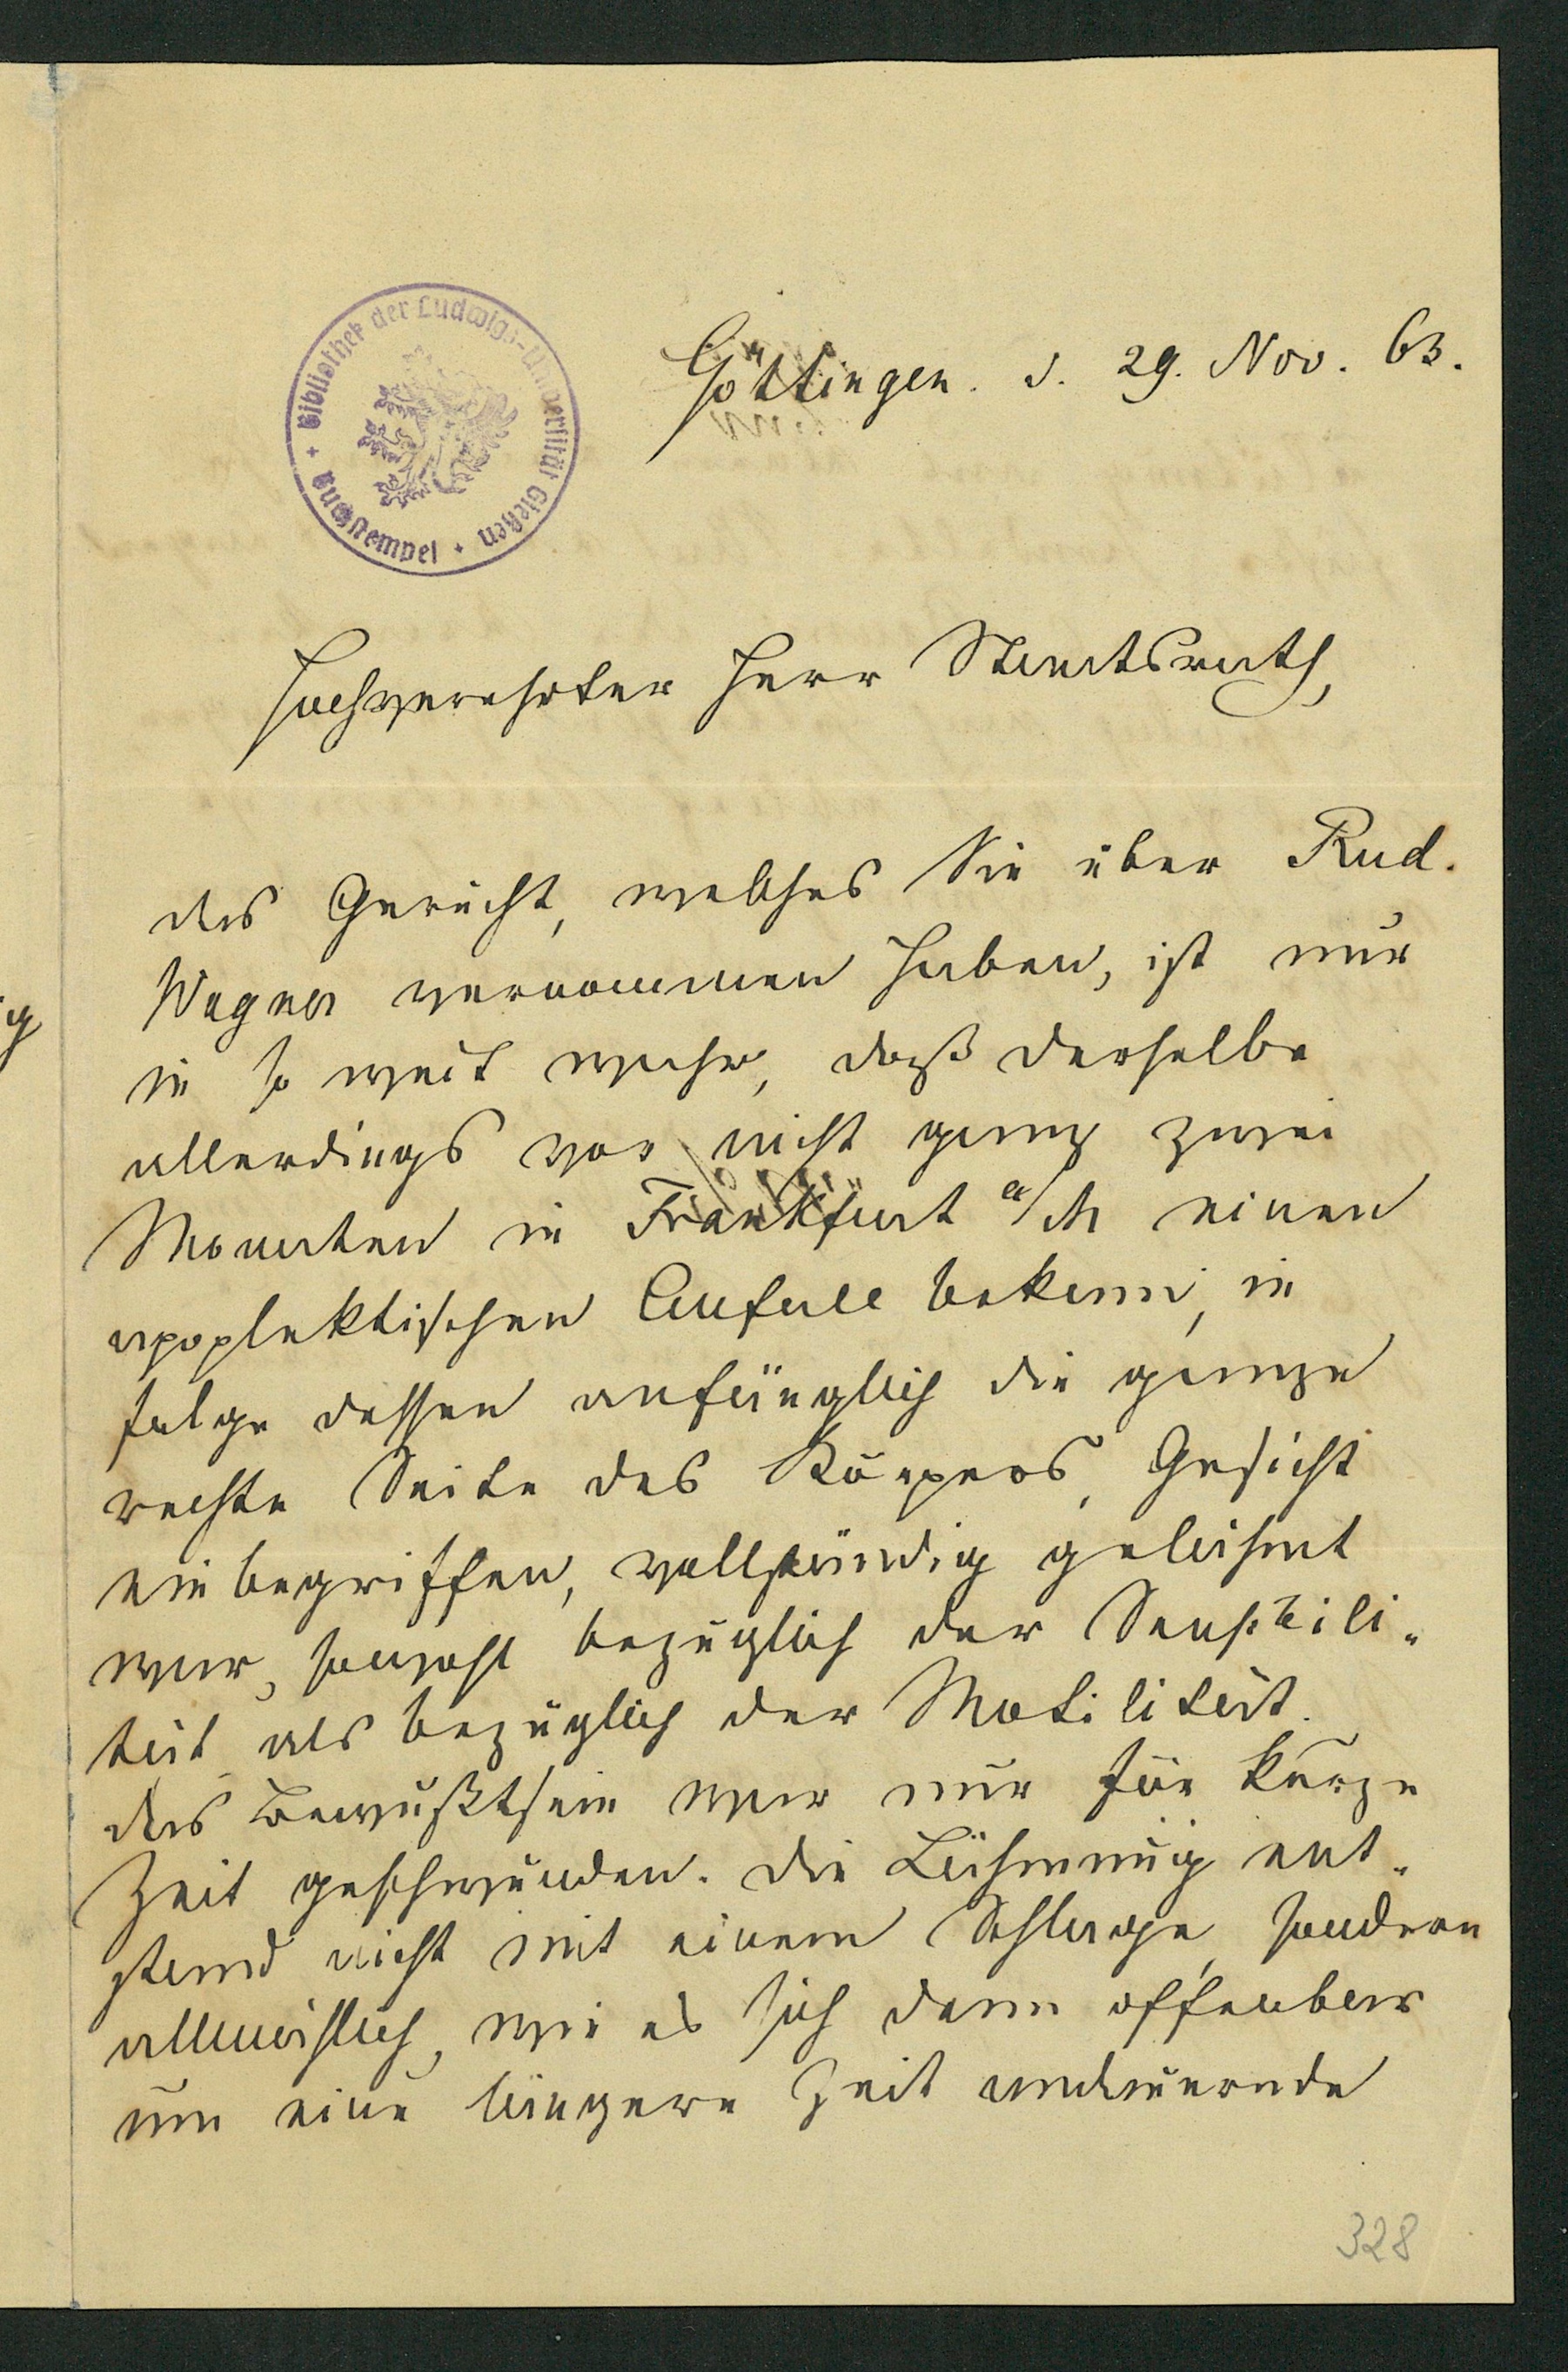 Bibliothek der Ludwigs-Universität Gießen
Buchstempel
Göttingen. d. 29. Nov. 63.
Hochverehrter Herr Staatsrath,
das Gerücht, welches Sie über Rud.
Wagner vernommen haben, ist nur
in so weit wahr, daß derselbe
allerdings vor nicht ganz zwei
Monaten in Frankfurt a/M einen
apoplektischen Anfall bekam, in
folge dessen anfänglich die ganze
rechte Seite des Körpers, Gesicht
einbegriffen, vollständig gelähmt
war, sowohl bezüglich der Sensibili-
tät als bezüglich der Motilität.
das Bewußtsein war nur für kurze
Zeit geschwunden. die Lähmung ent-
stand nicht mit einem Schlage, sondern
allmählich, wie es sich denn offenbar
um eine längere Zeit andauernde
328